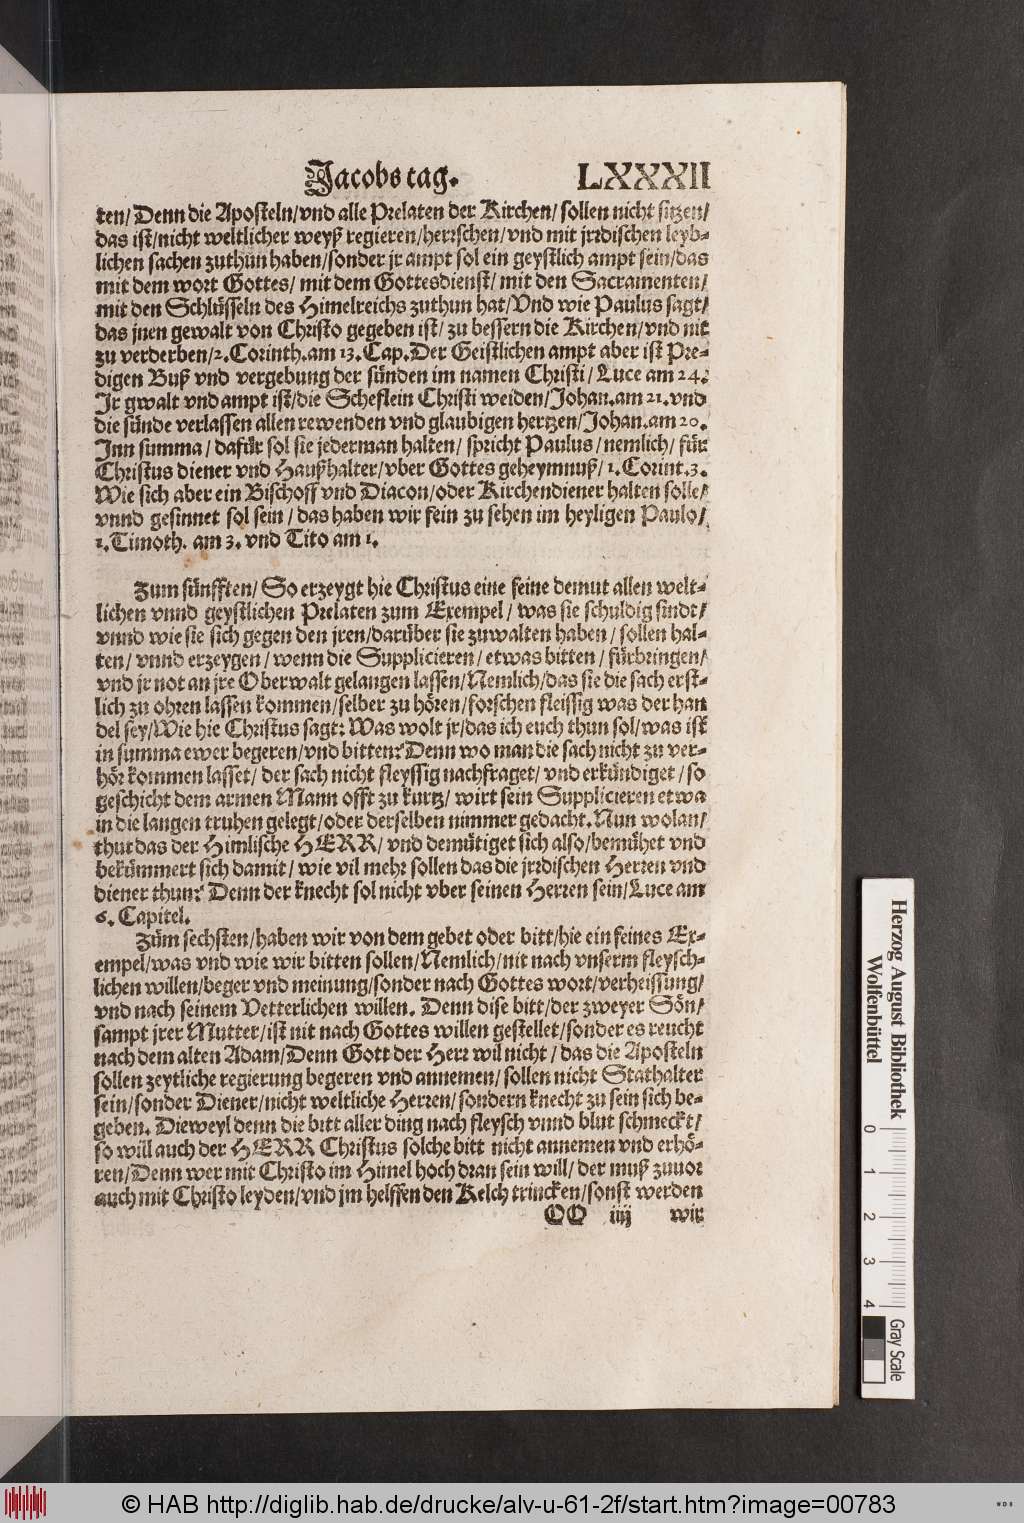 Jacobs tag. LXXXII
ten/ Denn die Aposteln/ vnd alle Prelaten der Kirchen/ sollen nicht sitzen/
das ist/ nicht weltlicher weyß regieren/ herrschen/ vnd mit jrrdischen leyb-
lichen sachen zuthůn haben/ sonder jr ampt sol ein geystlich ampt sein/ das
mit dem wort Gottes/ mit dem Gottesdienst/ mit den Sacramenten/
mit den Schlüsseln des Himelreichs zuthun hat/ Vnd wie Paulus sagt/
das jnen gewalt von Christo gegeben ist/ zu bessern die Kirchen/ vnd nit
zu verderben/ 2. Corinth. am 13. Cap. Der Geistlichen ampt aber ist Pre-
digen Buß vnd vergebung der sünden im namen Christi/ Luce am 24.
Jr gwalt vnd ampt ist/ die Scheflein Christi weiden/ Johan. am 21. vnd
die sünde verlassen allen rewenden vnd glaubigen hertzen/ Johan. am 20.
Inn summa/ dafür sol sie jederman halten/ spricht Paulus/ nemlich/ für
Christus diener vnd Haußhalter/ vber Gottes geheymnuß/ 1. Corint. 3.
Wie sich aber ein Bischoff vnd Diacon/ oder Kirchendiener halten solle/
vnnd gesinnet sol sein/ das haben wir fein zu sehen im heyligen Paulo/
1. Timoth. am 3. vnd Tito am 1.
Zum fünfften/ So erzeygt hie Christus eine feine demut allen welt-
lichen vnnd geystlichen Prelaten zum Exempel/ was sie schuldig sindt/
vnnd wie sie sich gegen den jren/ darüber sie zuwalten haben/ sollen hal-
ten/ vnnd erzeygen/ wenn die Supplicieren/ etwas bitten/ fürbringen/
vnd jr not an jre Oberwalt gelangen lassen/ Nemlich/ das sie die sach erst-
lich zu ohren lassen kommen/ selber zu hören/ forschen fleissig was der han
del sey/ Wie hie Christus sagt: Was wolt jr/ das ich euch thun sol/ was ist
in summa ewer begeren/ vnd bitten? Denn wo man die sach nicht zu ver-
hör kommen lasset/ der sach nicht fleyssig nachfraget/ vnd erkündiget/ so
geschicht dem armen Mann offt zu kurtz/ wirt sein Supplicieren etwa
in die langen truhen gelegt/ oder derselben nimmer gedacht. Nun wolan/
thut das der Himlische HERR/ vnd demütiget sich also/ bemühet vnd
bekümmert sich damit/ wie vil mehr sollen das die jrrdischen Herren vnd
diener thun? Denn der knecht sol nicht vber seinen Herren sein/ Luce am
6. Capitel.
Züm sechsten/ haben wir von dem gebet oder bitt/ hie ein feines Ex-
empel/ was vnd wie wir bitten sollen/ Nemlich/ nit nach vnserm fleysch-
lichen willen/ beger vnd meinung/ sonder nach Gottes wort/ verheissung/
vnd nach seinem Vetterlichen willen. Denn dise bitt/ der zweyer Sön/
sampt jrer Mutter/ ist nit nach Gottes willen gestellet/ sonder es reucht
nach dem alten Adam/ Denn Gott der Herr wil nicht/ das die Aposteln
sollen zeytliche regierung begeren vnd annemen/ sollen nicht Stathalter
sein/ sonder Diener/ nicht weltliche Herren/ sondern knecht zu sein sich be-
geben. Dieweyl denn die bitt aller ding nach fleysch vnnd blut schmeckt/
so will auch der HERR Christus solche bitt nicht annemen vnd erhö-
ren/ Denn wer mit Christo im Himel hoch dran sein will/ der muß zuuor
auch mit Christo leyden/ vnd jm helffen den Kelch trincken/ sonst werden
OO iiij wir
Herzog August Bibliothek
Wolfenbüttel
0 1 2 3 4
Gray Scale
© HAB http://diglib.hab.de/drucke/alv-u-61-2f/start.htm?image=00783